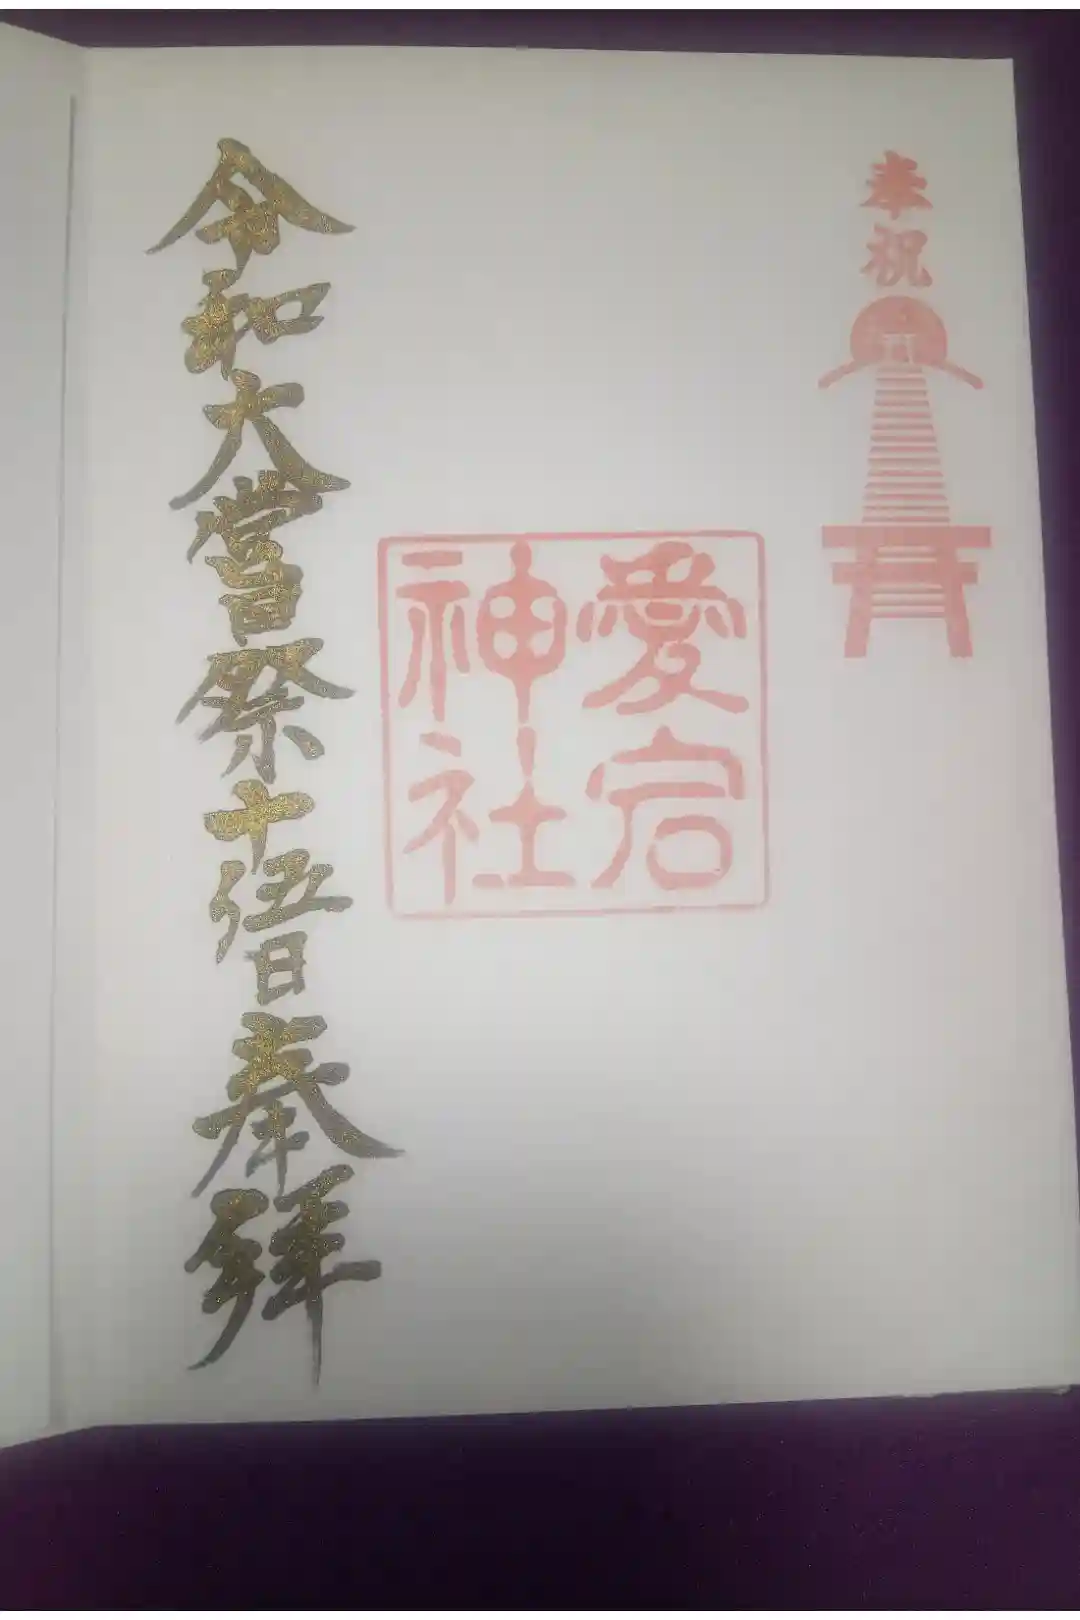 奉祝
愛宕
神社
令和大嘗祭十五日奉拝